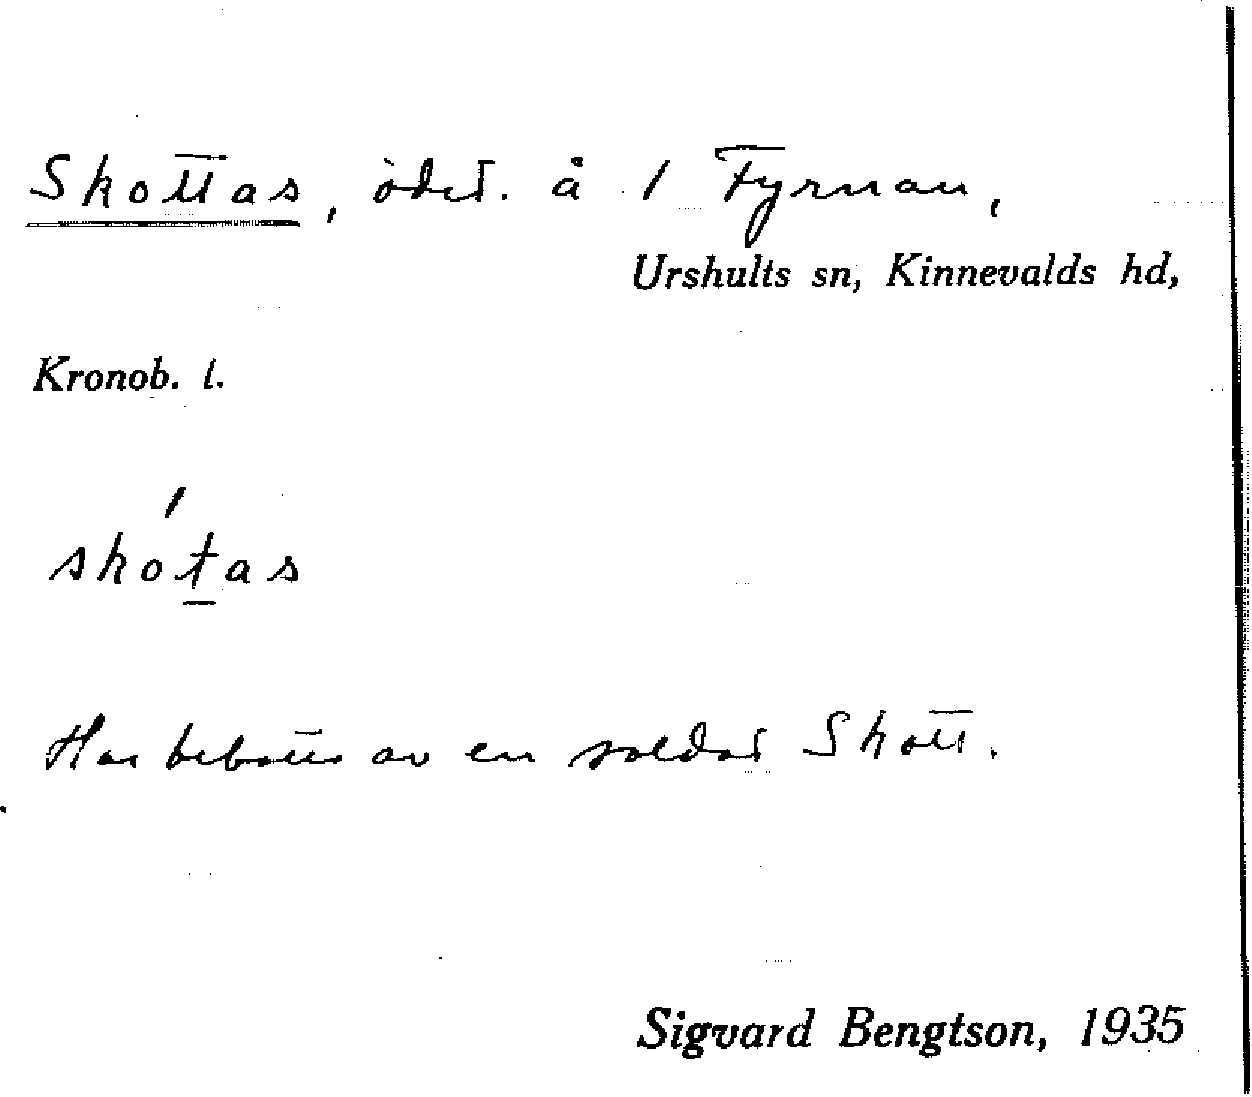 Skottas, ödet. å 1 Fyrnan,
Urshults sn, Kinnevalds hd,
Kronob. l.
skotas
Har bebotts av en soldat Skott.
Sigvard Bengtson, 1935